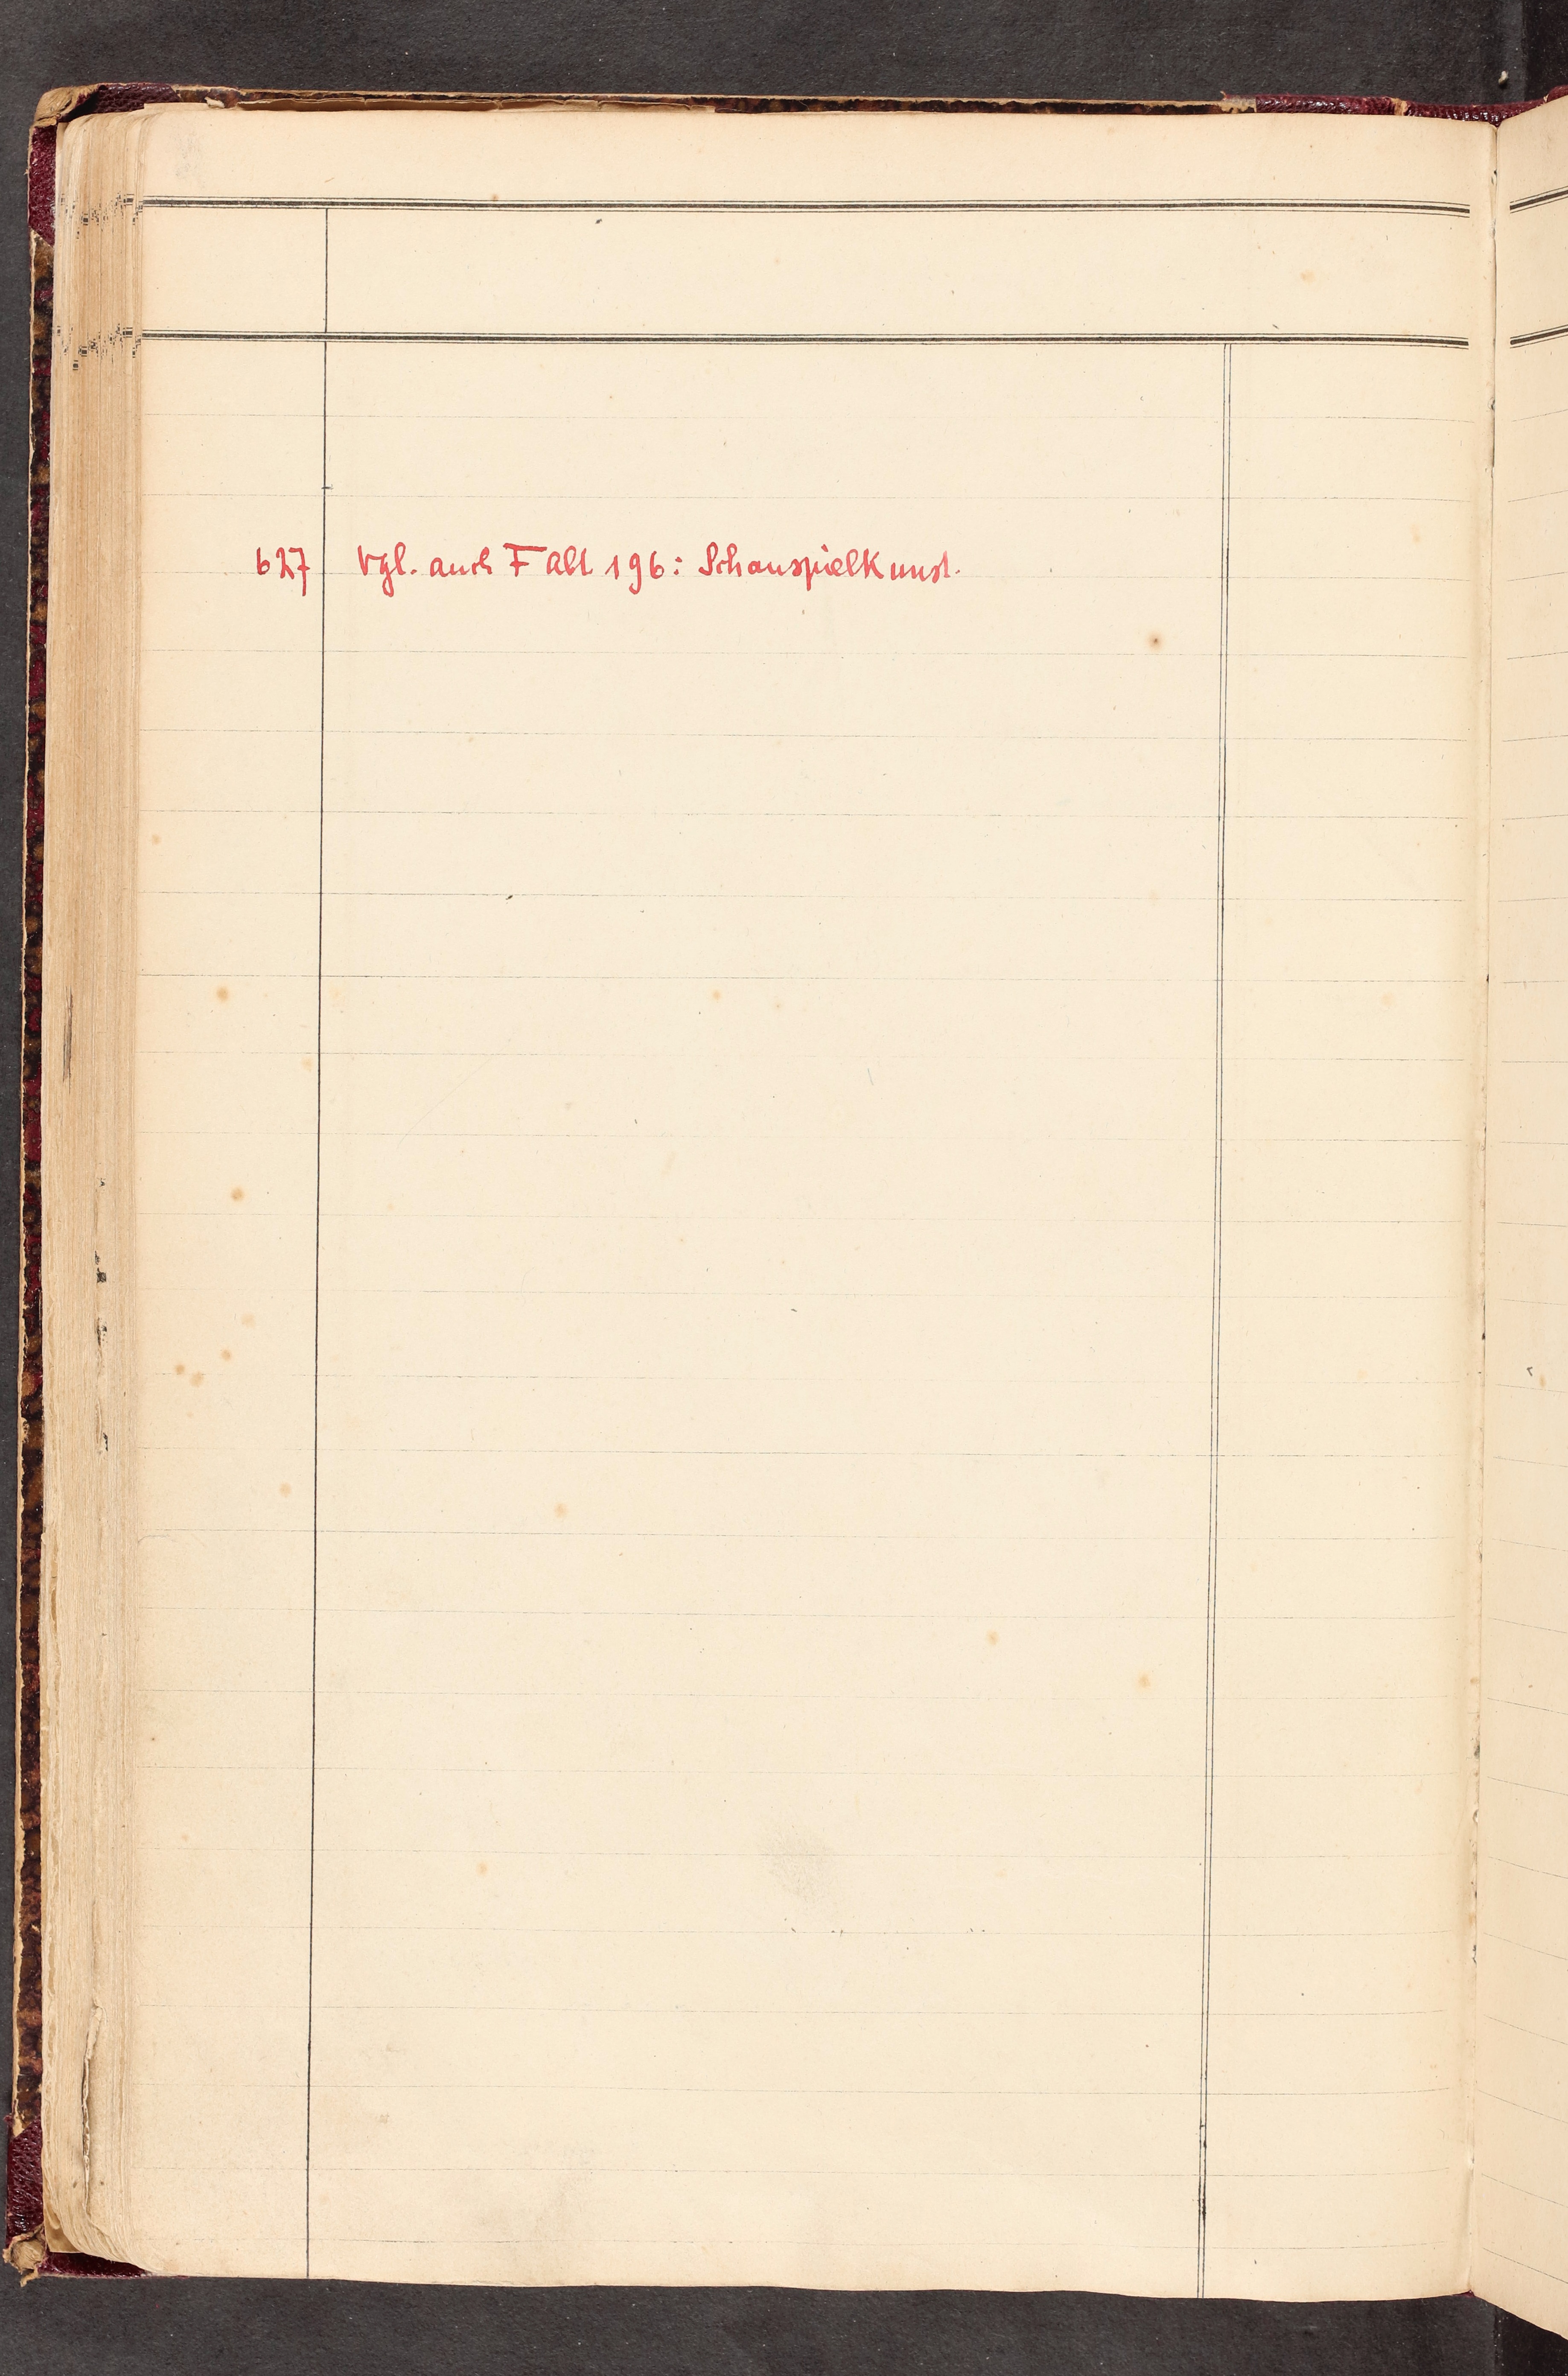 627 Vgl. auch F Abt 196: Schauspielkunst.